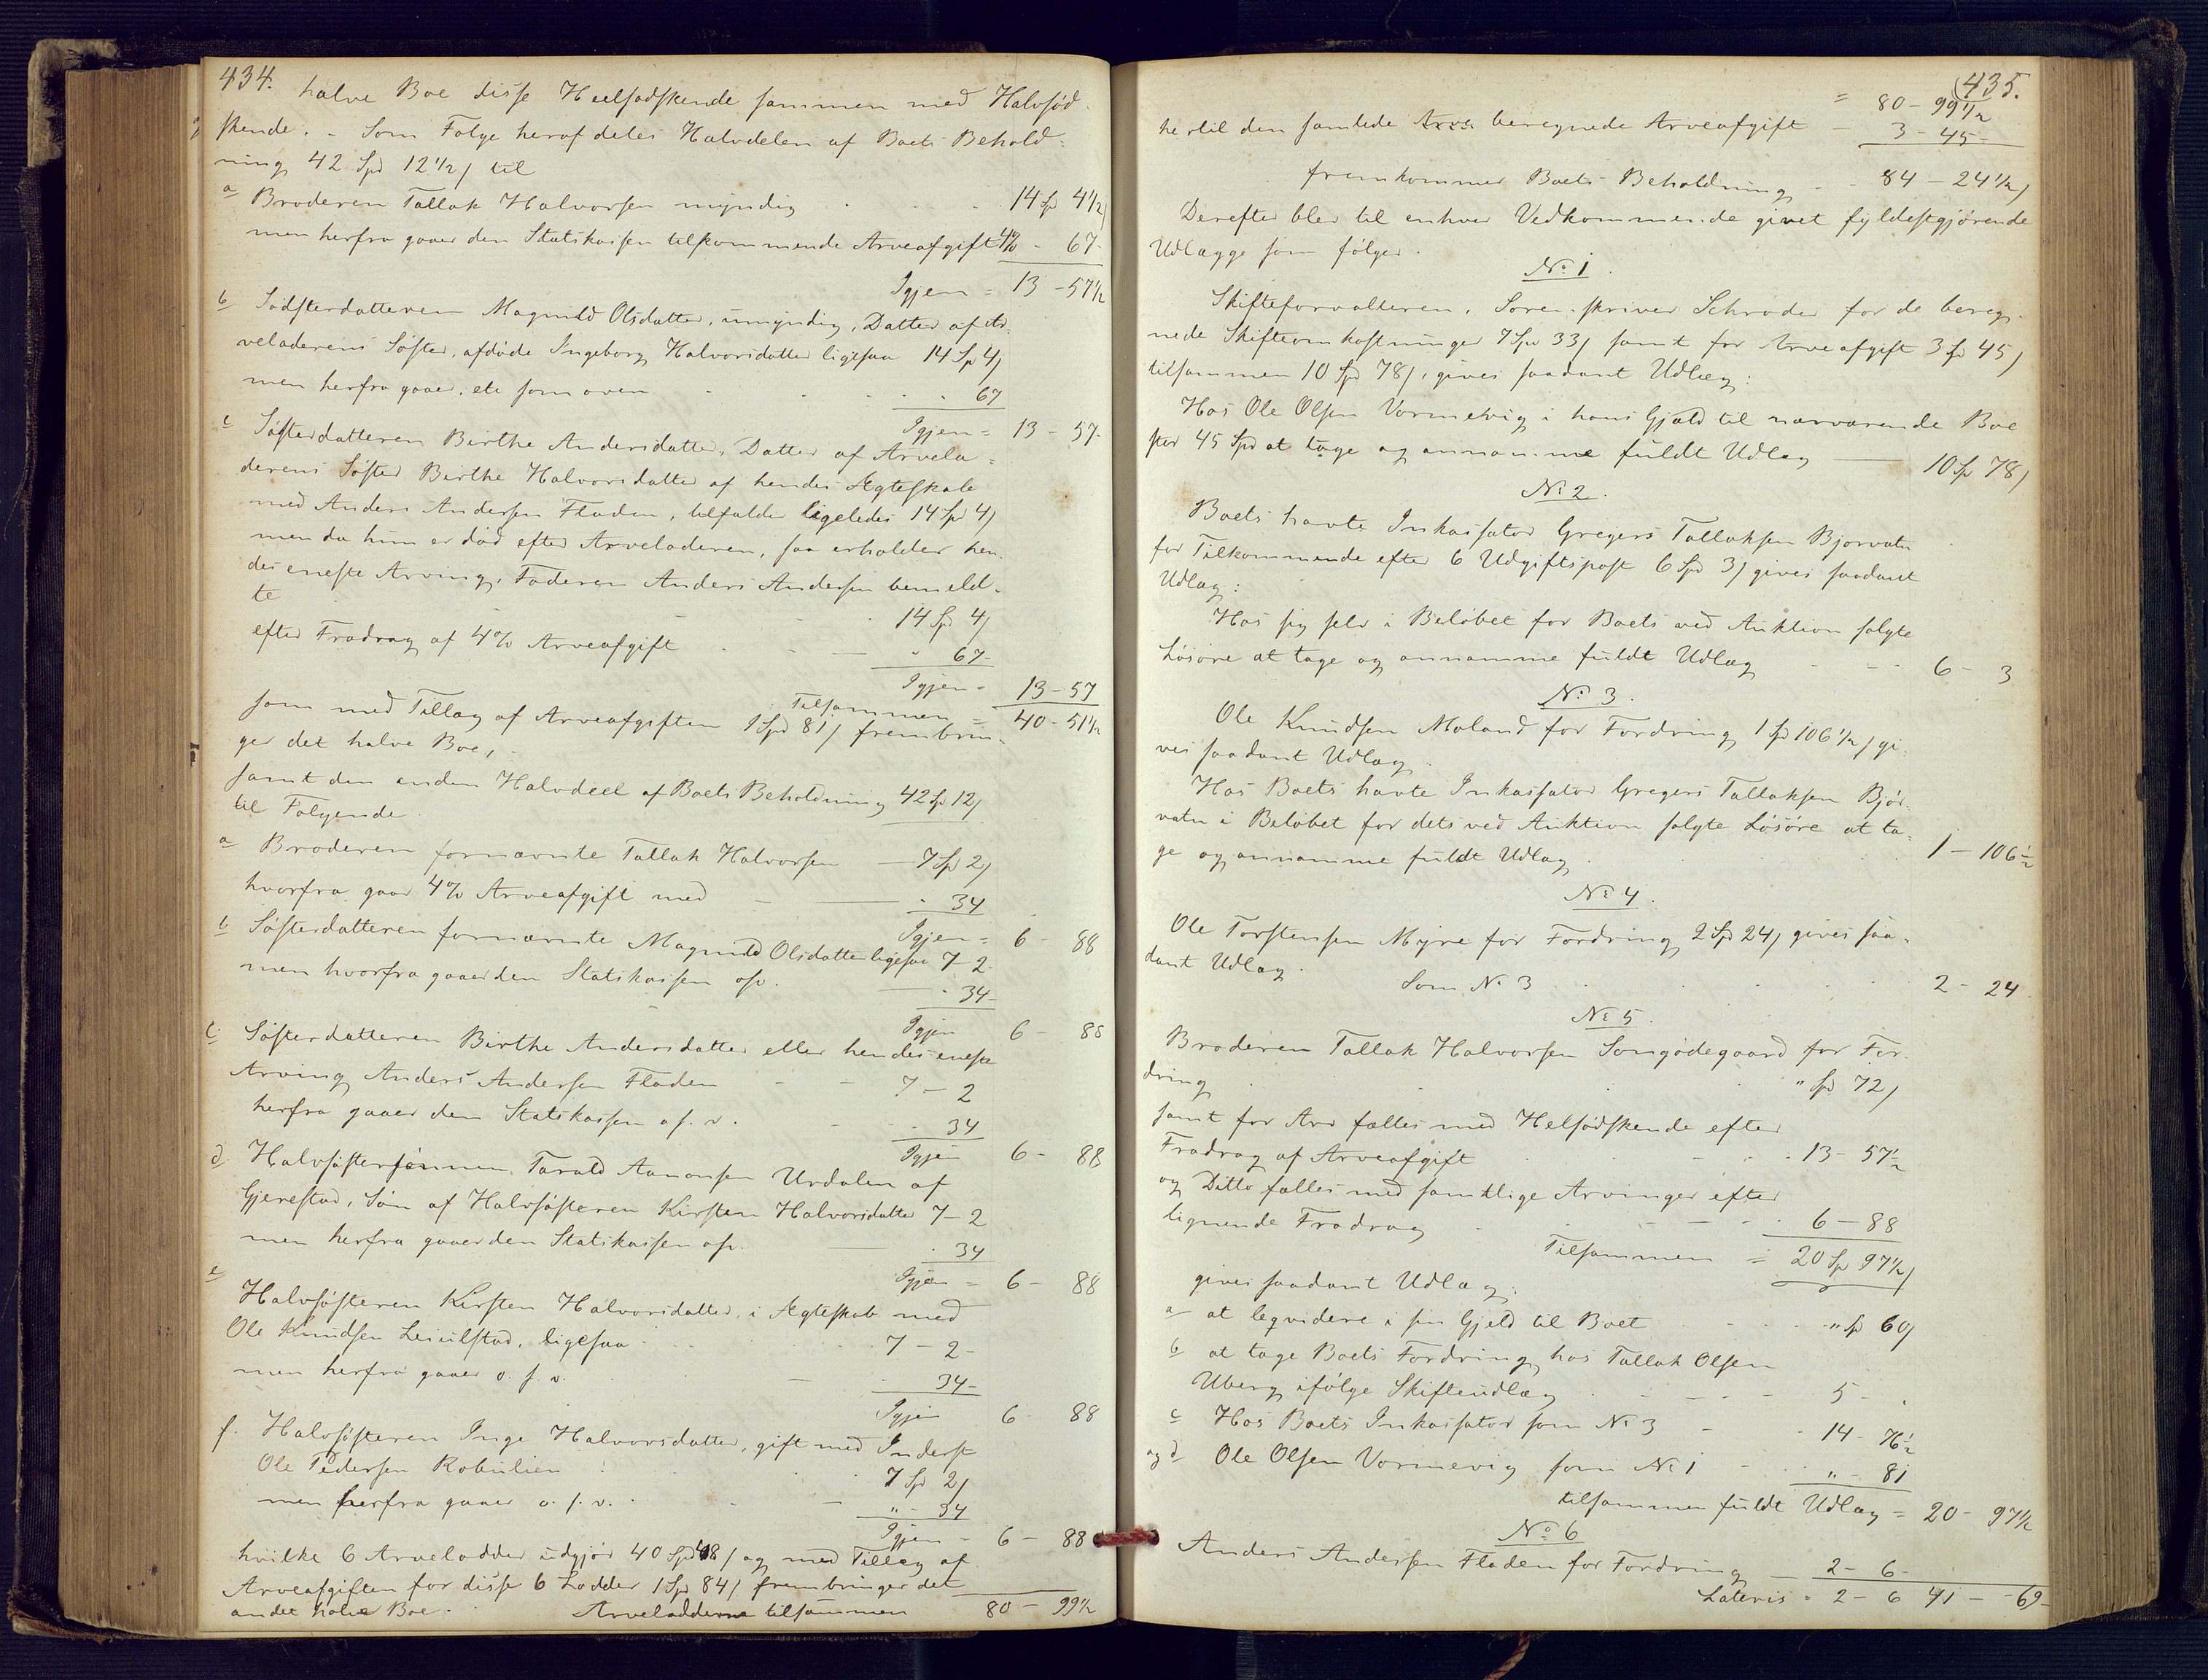 434.
halve Boe disse Heelsødskende sammen med Halvsød-
skende. - Som Følge heraf deles Halvdelen af Boets Behold-
ning 42 Spd 12 1/2 ſ til
a Broderen Tallak Halvorsen myndig 14 Sp 4 1/2 ſ
men herfra gaaer den Statskassen tilkommende Arveafgift 4% - 67-
Igjen = 13 - 57 1/2
b Sødsterdatteren Magnild Olsdatter, umyndig, Datter af Ar-
veladerens Søster, afdøde Ingeborg Halvorsdatter ligesaa 14 Sp 4 ſ
men herfra gaaer, etc som oven 67
Igjen = 13 - 57-
c Søsterdatteren Birthe Andersdatter, Datter af Arvela-
derens Søster Birthe Halvorsdatter af hendes Ægteskab
med Anders Andersen Fladen, tilfalder ligeledes 14 Spd 4 ſ
men da hun er død efter Arveladeren, saa erholder hen-
des eneste Arving, Faderen Anders Andersen bemeld-
te 14 Spd 4 ſ
efter Fradrag af 4% Arveafgift " 67-
Igjen = 13 - 57
Tilsammen = 40 - 51 1/2
som med Tillæg af Arveafgiften 1 Spd 81 ſ frembrin-
ger det halve Boe,
samt den anden Halvdeel af Boets Beholdning 42 Sp 12 ſ
til Følgende
a Broderen fornævnte Tallak Halvorsen — 7 Spd 2 ſ
hvorfra gaar 4% Arveafgift med - 34
Igjen = 6 - 88
b Søsterdatteren fornævnte Magnild Olsdatter ligesaa 7 - 2-
men hvorfra gaaer den Statskassen osv. - 34-
Igjen 6 - 88
c. Søsterdatteren Birthe Andersdatter eller hendes eneste
Arving Anders Andersen Fladen - 7 - 2
herfra gaaer den Statskassen o. s. v. 34
Igjen 6 - 88
d. Halvsøstersønnen Tarald Aanonsen Urdalen af
Gjerestad, Søn af Halvsøsteren Kirsten Halvorsdatter 7 - 2
men herfra gaaer den Statskassen osv. 34
Igjen = 6 - 88
e Halvsøsteren Kirsten Halvorsdatter, i Ægteskab med
Ole Knudsen ligesaa 7 - 2-
men herfra gaaer o. s. v. 34-
Igjen 6 - 88
f. Halvsøsteren Inge Halvorsdatter, gift med Inderst
Ole Pedersen 7 Spd 2 ſ
men herfra gaaer o. s. v. " - 34
Igjen - 6 - 88
hvilke 6 Arvelodder udgjør 40 Spd 48 ſ og med Tillæg af
Arveafgiften for disse 6 Lodder 1 Spd 84 ſ frembringer det
andet halve Boe. Arvelodderne tilsammen 80 - 99 1/2
435.
= 80 - 99 1/2
hertil den samlede beregnede Arveafgift - 3 - 45-
fremkommer Boets Beholdning - 84 - 24 1/2 ſ
Derefter blev til enhver Vedkommende givet fyldestgjørende
Udlægge som følger.
No 1.
Skifteforvalteren, Sorenskriver Schrøder for de bereg-
nede Skifteomkostninger 7 Spd 33 ſ samt for Arveafgift 3 Sp 45 ſ
tilsammen 10 Spd 78 ſ, gives saadant Udlæg:
Hos Ole Olsen Vormelvig i hans Gjæld til nærværende Boe
stor 45 Spd at tage og annamme fuldt Udlæg — 10 Sp 78 ſ
No 2.
Boets havte Inkassator Gregers Tallaksen Bjorvatn
for Tilkommende efter 6 Udgiftspost 6 Spd 3 ſ gives saadant
Udlæg:
Hos sig selv i Beløbet for Boets ved Auktion solgte
Løsøre at tage og annamme fuldt Udlæg - 6 - 3
No 3.
Ole Knudsen Moland for Fordring 1 Sp 106 1/2 ſ gi-
ves saadant Udlæg.
Hos Boets havte Inkassator Gregers Tallaksen Bjør-
vatn i Beløbet for dets ved Auktion solgte Løsøre at ta-
ge og annamme fuldt Udlæg 1 - 106 1/2
No 4.
Ole Torstensen Myre for Fordring 2 Spd 24 ſ gives saa-
dant Udlæg.
Som No 3 2 - 24
No 5.
Broderen Tallak Halvorsen Songødegaard for For-
dring " Spd 72 ſ
samt for Arv fælles med Helsødskende efter
Fradrag af Arveafgift 13 - 57 1/2
og Ditto fælles med samtlige Arvinger efter
lignende Fradrag 6 - 88
Tilsammen = 20 Sp 97 1/2 ſ
gives saadant Udlæg:
a at leqvidere i sin Gjeld til Boet " Sp 60 ſ
b at tage Boets Fordring hos Tallak Olsen
Uberg ifølge Skifteudlæg 5 - "
c Hos Boets Inkassator som No 3 - 14 - 76 1/2
og d Ole Olsen Vormelvig som No 1 - " - 81
tilsammen fuldt Udlæg = 20 - 97 1/2
No 6
Anders Andersen Fladen for Fordring — 2 - 6-
Lateris = 2 - 6 41 - 69-